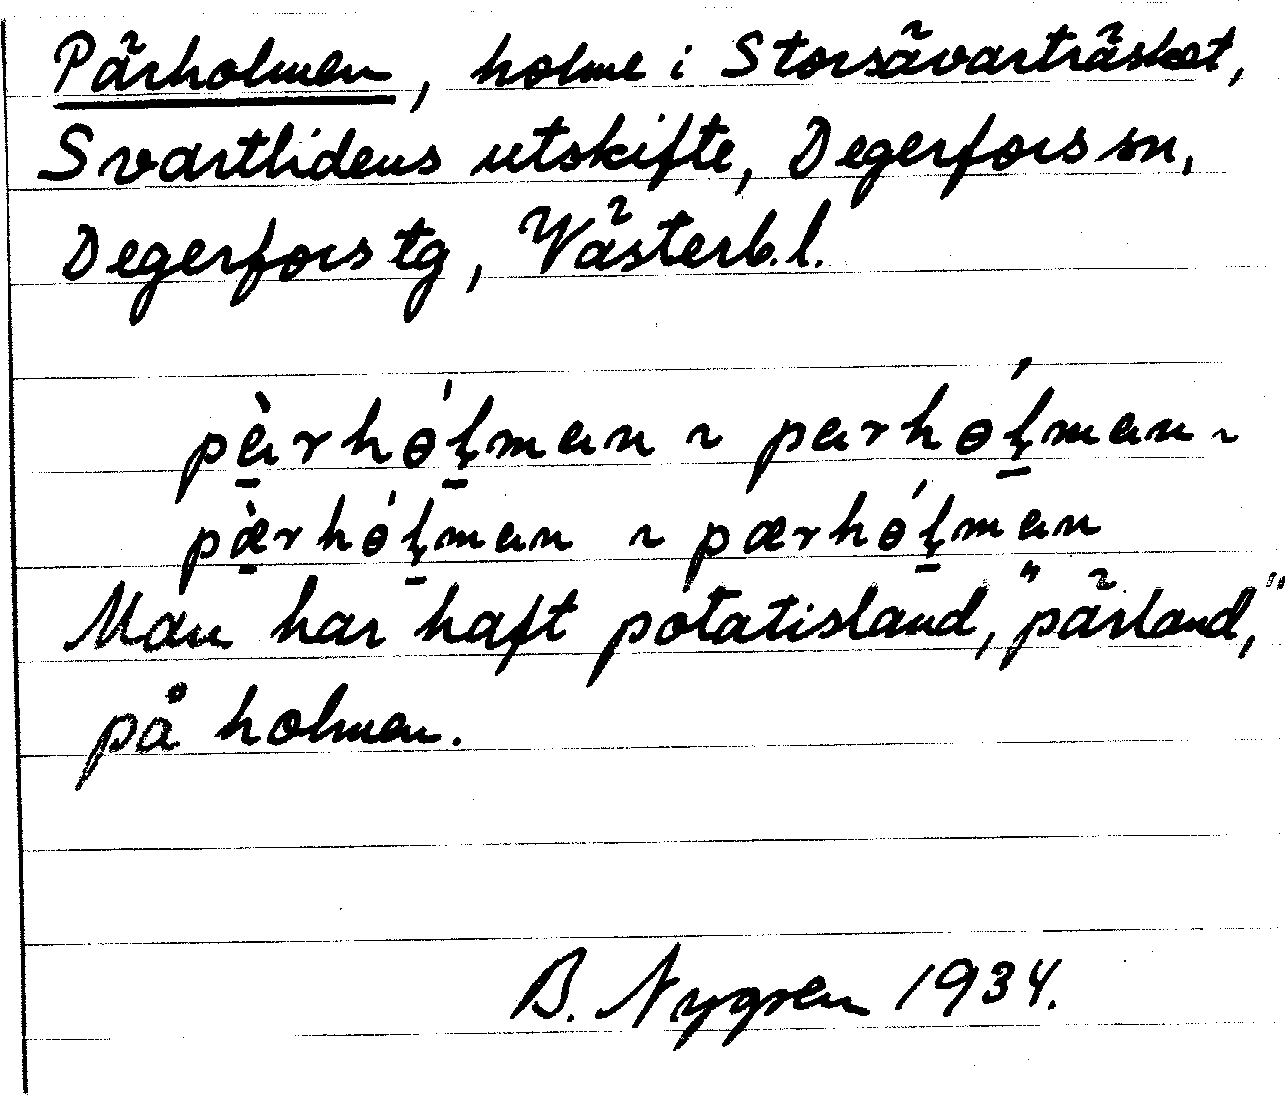 Pärholmen, holme i Storsävarträsket,
Svartlidens utskifte, Degerfors sn,
Degerfors tg, Västerb. l.
pàrhó̵ļman ~ parhó̵ļman ~
pæ̀rhó̵ļman ~ pærhó̵ļman
Man har haft potatisland, "pärland,"
på holmen.
B. Nygren 1934.